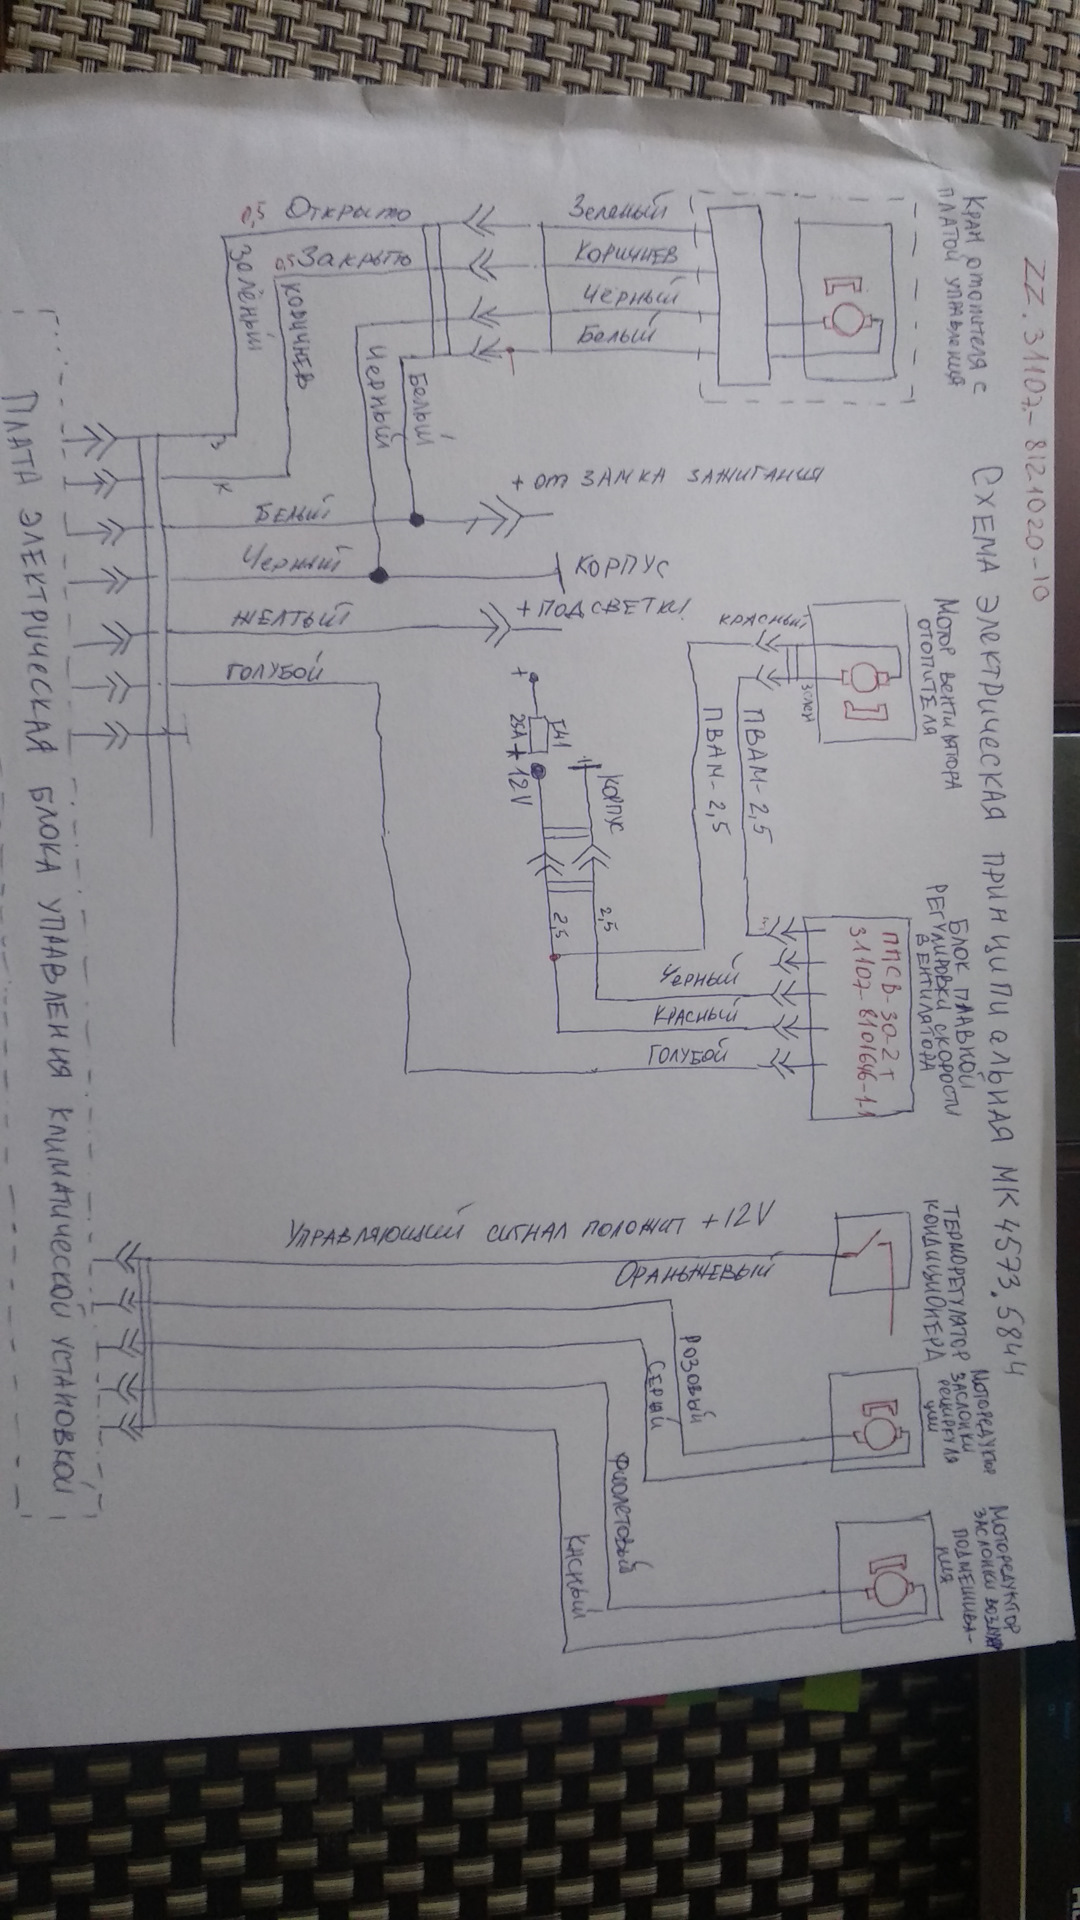 ZZ.31107-8121020-10
СХЕМА ЭЛЕКТРИЧЕСКАЯ ПРИНЦИПИАЛЬНАЯ МК 4573.5844
Кран отопителя с
платой управления
Мотор вентилятора
отопителя
Блок плавной
регулировки скорости
вентилятора
ТЕРМОРЕГУЛЯТОР
КОНДИЦИОНЕРА
Моторедуктор
заслонки
рециркуля
ции
Моторедуктор
заслонки воздуха
подмешива-
ния
Зеленый
Коричнев
Черный
Белый
0,5 Открыто
0,5 Закрыто
Зелёный
Коричнев
Черный
Белый
З
К
БЕЛЫЙ
+ от ЗАМКА ЗАЖИГАНИЯ
Черный
КОРПУС
ЖЕЛТЫЙ
+ ПОДСВЕТКИ
ГОЛУБОЙ
КРАСНЫЙ
зелен
ПВАМ-2,5
ПВАМ-2,5
+
25А
+12V
КОРПУС
2,5
2,5
ППСВ-30-2Т
31107-8101646-11
Черный
КРАСНЫЙ
ГОЛУБОЙ
УПРАВЛЯЮЩИЙ СИГНАЛ ПОЛОЖИТ +12V
ОРАНЬЖЕВЫЙ
РОЗОВЫЙ
СЕРЫЙ
Фиолетовый
КАСНЫЙ
ПЛАТА ЭЛЕКТРИЧЕСКАЯ БЛОКА УПАВЛЕНИЯ КЛИМАТИЧЕСКОЙ УСТАНОВКОЙ